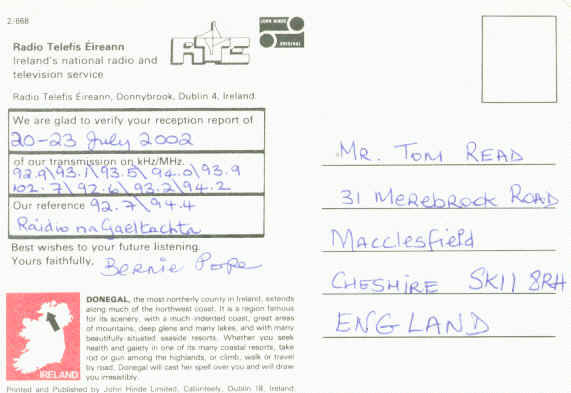 2/868
Radio Telefís Éireann
Ireland's national radio and
television service
RTE
JOHN HINDE
ORIGINAL
Radio Telefís Éireann, Donnybrook, Dublin 4, Ireland.
We are glad to verify your reception report of
20-23 July 2002
of our transmission on kHz/MHz.
92.9\93.1\93.5\94.0\93.9
102.7\92.6\93.2\94.2
Our reference 92.7\94.4
Raidio na Gaeltachta
Best wishes to your future listening.
Yours faithfully, Bernie Pope
IRELAND
DONEGAL, the most northerly county in Ireland, extends
along much of the northwest coast. It is a region famous
for its scenery, with a much-indented coast, great areas
of mountains, deep glens and many lakes, and with many
beautifully situated seaside resorts. Whether you seek
health and gaiety in one of its many coastal resorts, take
rod or gun among the highlands, or climb, walk or travel
by road, Donegal will cast her spell over you and will draw
you irresistibly.
Printed and Published by John Hinde Limited, Cabinteely, Dublin 18, Ireland.
MR. TOM READ
31 MEREBROCK ROAD
MACCLESFIELD
CHESHIRE SK11 8RH
ENGLAND